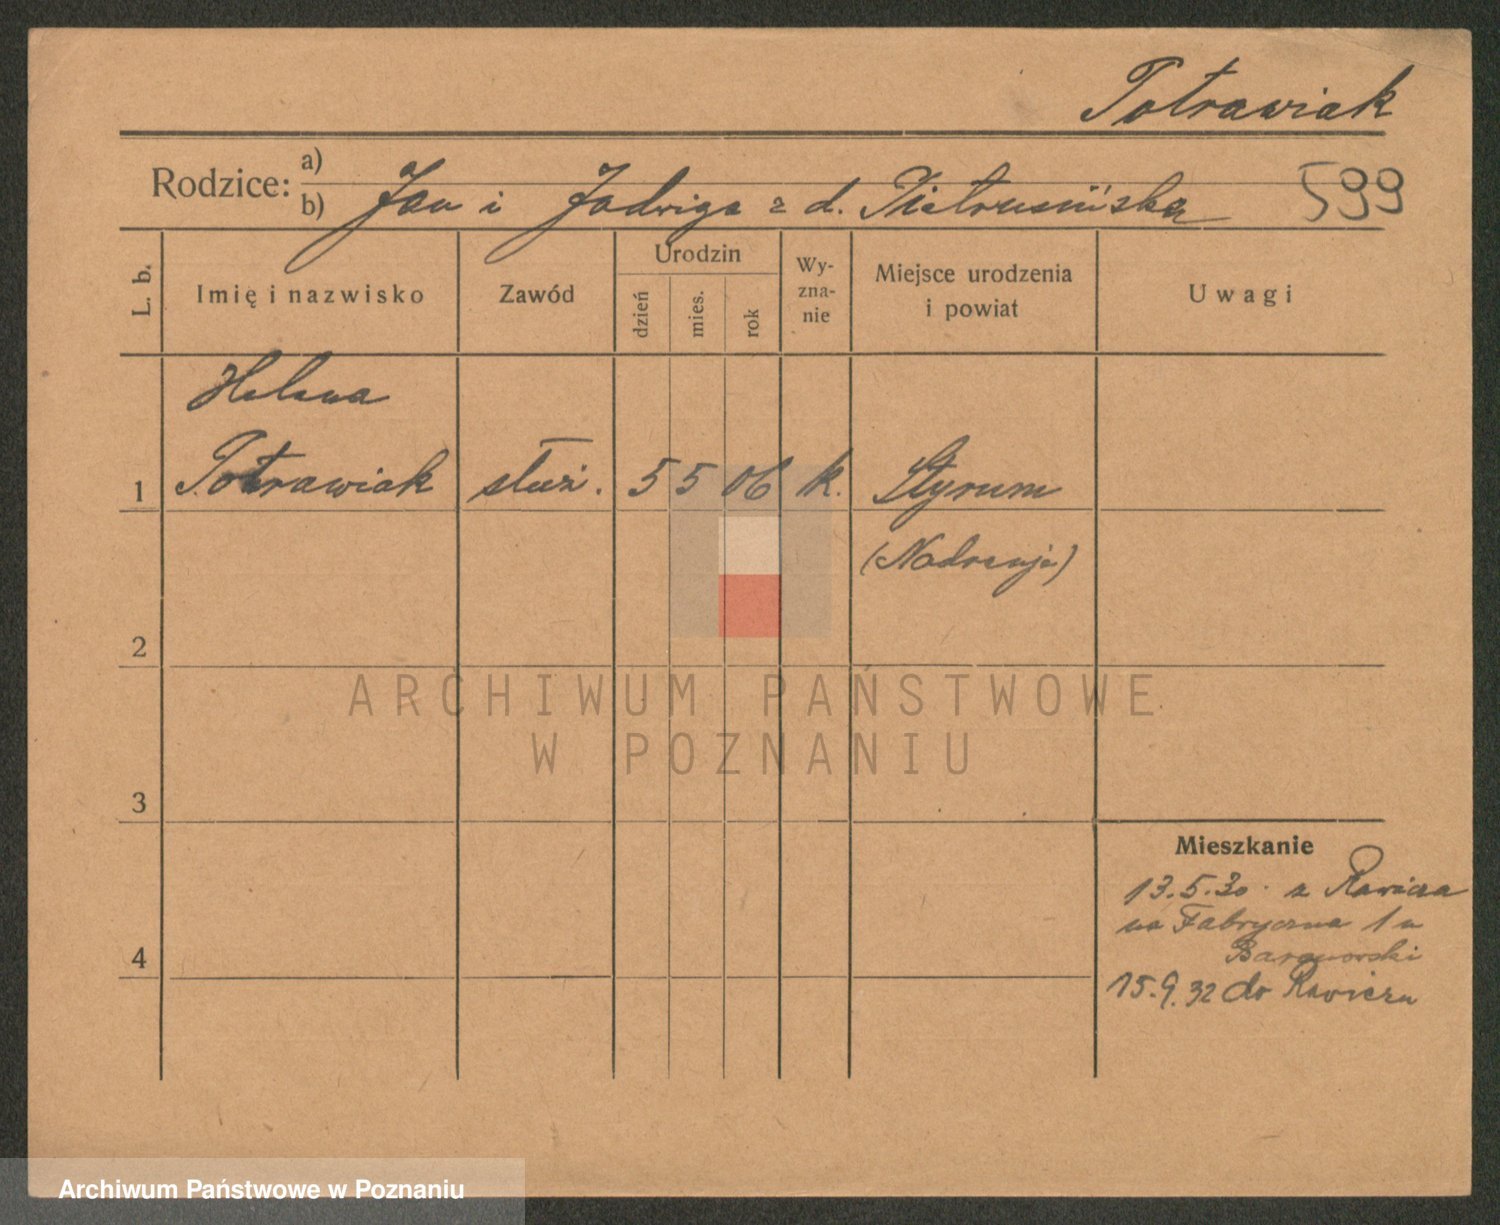 Potrawiak
Rodzice: a)
b) Jan i Jadwiga z d. Pietrusińska 599
L. b.
Imię i nazwisko
Zawód
Urodzin
dzień
mies.
rok
Wy-
zna-
nie
Miejsce urodzenia
i powiat
Uwagi
Helena
1 Potrawiak służ. 5 5 06 k. Styrum
(Nadrenja)
2
ARCHIWUM PAŃSTWOWE
W POZNANIU
3
Mieszkanie
13.5.30. z Rawicza
na Fabryczna 1 u
Baranowski
4
15.9.32 do Rawicza
Archiwum Państwowe w Poznaniu